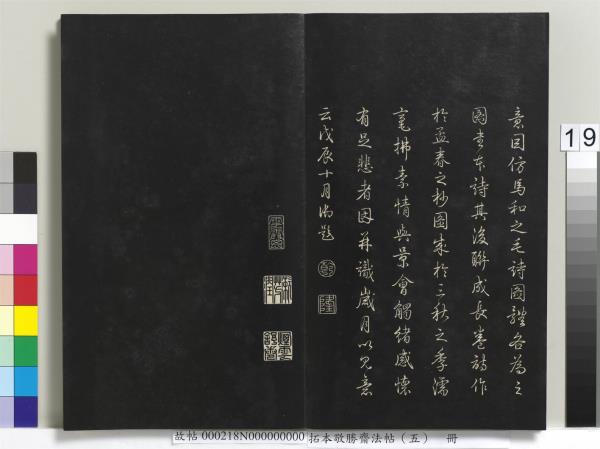 意因仿馬和之毛詩圖體各為之
圖書本詩其後聯成長卷詩作
於孟春之杪圖成於三秋之季濡
毫拂素情與景會觸緒感懷
有足悲者因并識歲月以見意
云戊辰十月御題
乾
隆
19
故帖 000218N000000000 拓本敬勝齋法帖（五） 冊